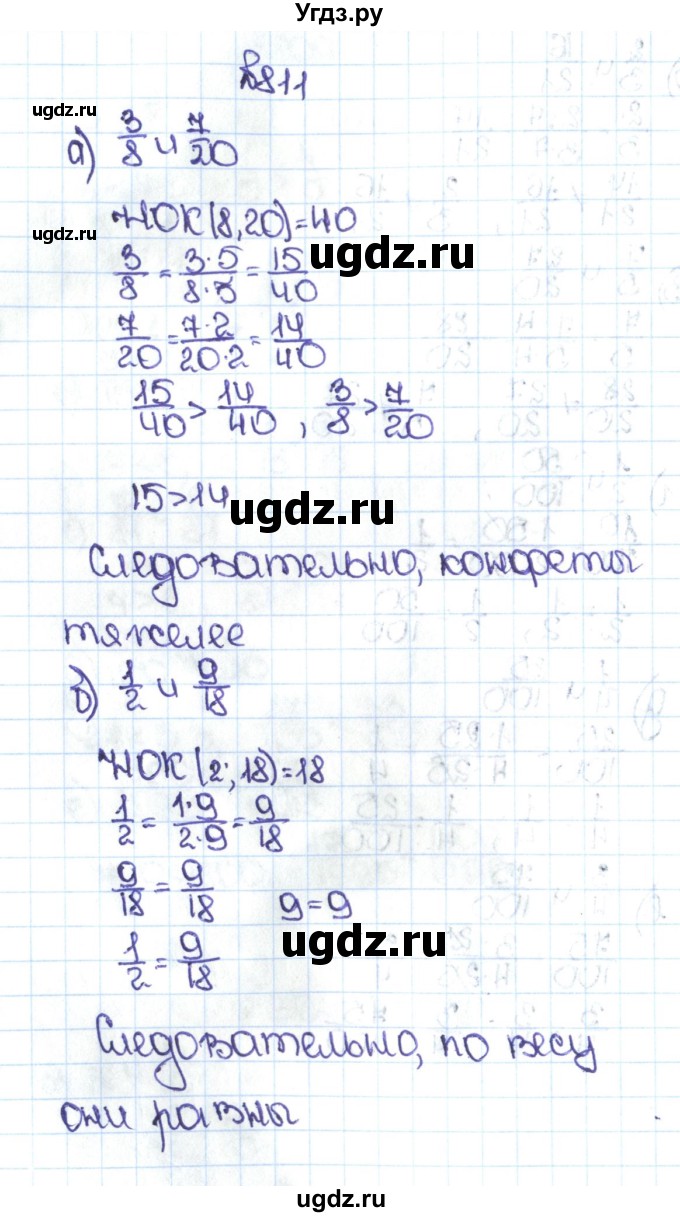 Угдз.ру
№811
ugdz.ru
а) 3/8 и 7/20
НОК(8,20)=40
ugdz.ru
3/8 = 3·5/8·5 = 15/40
ugdz.ru
7/20 = 7·2/20·2 = 14/40
15/40 > 14/40 , 3/8 > 7/20
15>14
ugdz.ru
Следовательно, конфеты
тяжелее
ugdz.ru
б) 1/2 и 9/18
НОК(2;18)=18
1/2 = 1·9/2·9 = 9/18
9/18 = 9/18 9=9
ugdz.ru
1/2 = 9/18
Следовательно, по весу
они равны
ugdz.ru